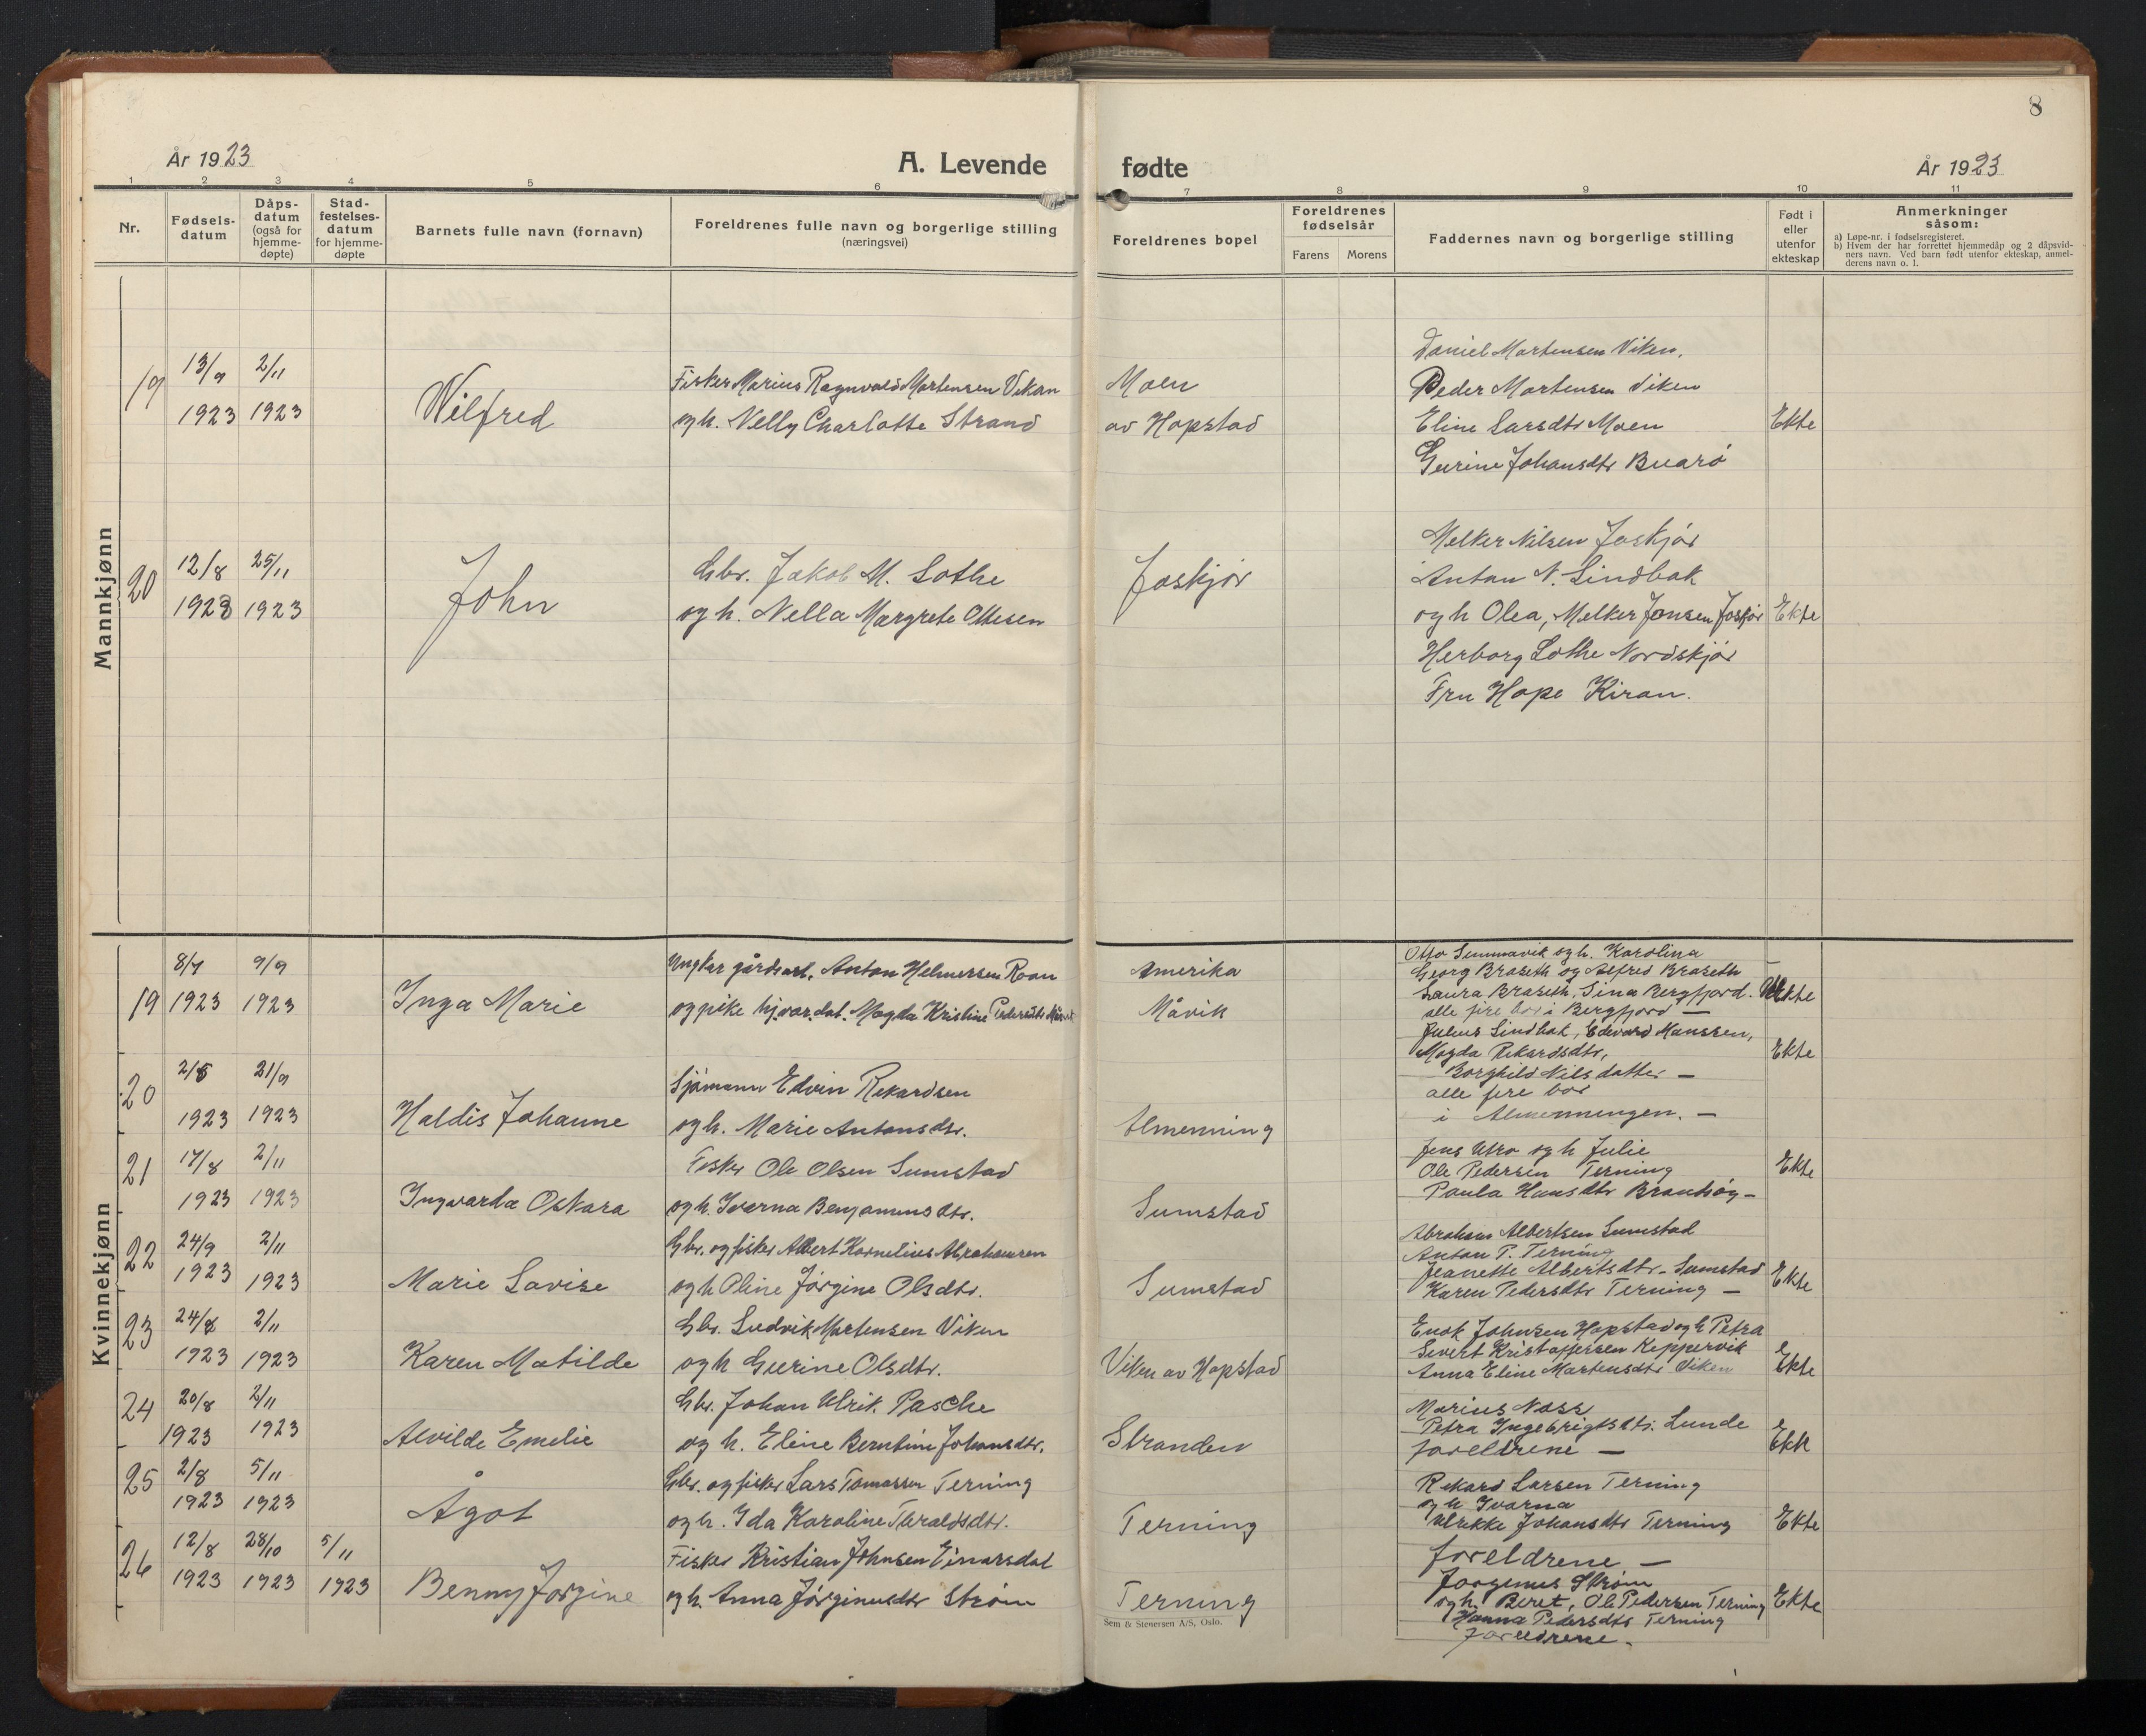 8
År 1923
A. Levende
fødte
År 1923
1 2 3 4 5 6 7 8 9 10 11
Nr.
Fødsels-
datum
Dåps-
datum
(også for
hjemme-
døpte)
Stad-
festelses-
datum
for hjemme-
døpte
Barnets fulle navn (fornavn)
Foreldrenes fulle navn og borgerlige stilling
(næringsvei)
Foreldrenes bopel
Foreldrenes
fødselsår
Farens
Morens
Faddernes navn og borgerlige stilling
Født i
eller
utenfor
ekteskap
Anmerkninger
såsom:
a) Løpe-nr. i fødselsregisteret.
b) Hvem der har forrettet hjemmedåp og 2 dåpsvid-
ners navn. Ved barn født utenfor ekteskap, anmel-
derens navn o. l.
Mannkjønn
19
13/9 1923
2/11 1923
Wilfred
Fisker Marius Ragnvald Mortensen Vikan
og h. Nelly Charlotte Strand
Moen
av Hopstad
Daniel Mortensen Viken.
Peder Mortensen Viken
Eline Larsdtr Moen
Gurine Johansdtr Buarø
Ekte
20
12/8 1923
25/11 1923
John
Gbr. Jakob M. Lothe
og h. Nella Margrete Ottesen
Joskjør
Melker Nilsen Joskjør
Anton N. Lindbak
og h Olea, Melker Jonsen Joskjør
Herborg Lothe Nordskjør
Fru Hope Kiran.
Ekte
Kvinnekjønn
19
8/7 1923
9/9 1923
Inga Marie
Ungkar gårdsarb. Anton Helmersen Roan
og pike hj.vær. dat. Magda Kristine Pedersdtr Måvik
Amerika
Måvik
Otto Summavik og h. Karolina
Georg Braseth og Alfred Braseth
Laura Braseth, Sina Bergfjord.
alle fire bor i Bergfjord —
Uekte
20
21/9
1923
1923
Haldis Johanne
Sjømann Edvin Rekardsen
og h. Marie Antonsdtr.
Almenning
Julius Lindbak, Edvard Hanssen,
Magda Rikardsdtr,
Borghild Nilsdatter —
alle fire bor
i Almenningen. —
Ekte
21
17/8 1923
2/11 1923
Ingvarda Oskara
Fisker Ole Olsen Sumstad
og h. Iverna Benjaminsdtr.
Sumstad
Jens Utro og h Julie
Ole Pedersen Terning
Paula Hansdtr Brandsøy —
Ekte
22
24/9 1923
2/11 1923
Marie Lovise
Gbr. og fisker Albert Kornelius Abrahamsen
og h Oline Jørgine Olsdtr.
Sumstad
Abraham Albertsen Sumstad
Anton P. Terning
Jeanette Albertsdtr. Sumstad
Karen Pedersdtr Terning —
Ekte
23
24/8 1923
2/11 1923
Karen Matilde
Gbr. Ludvik Mortensen Viken
og h Gurine Olsdtr.
Viken av Hopstad
Enok Johnsen Hopstad og h Petra
Sivert Kristoffersen Keppervik
Anna Eline Martensdtr Viken
Ekte
24
20/8 1923
2/11 1923
Alvilde Emelie
Gbr. Johan Ulrik Pasche
og h. Eline Berntine Johansdtr.
Stranden
Marius Nass
Petra Ingebrigtsdtr. Lunde
foreldrene —
Ekte
25
2/8 1923
5/11 1923
Ågot
Gbr. og fisker Lars Tomassen Terning
og h. Ida Karoline Haraldsdtr.
Terning
Rikard Larsen Terning
og h Ivarna
Ulrikke Johansdtr Terning
foreldrene —
Ekte
26
12/8 1923
28/10 1923
5/11 1923
Benny Jørgine
Fisker Kristian Johnsen Einarsdal
og h. Anna Jørginusdtr Strøm
Terning
Jørginus Strøm
og h. Beret, Ole Pedersen Terning
Hanna Pedersdtr Terning
foreldrene.
Ekte
Sem & Stenersen A/S, Oslo.